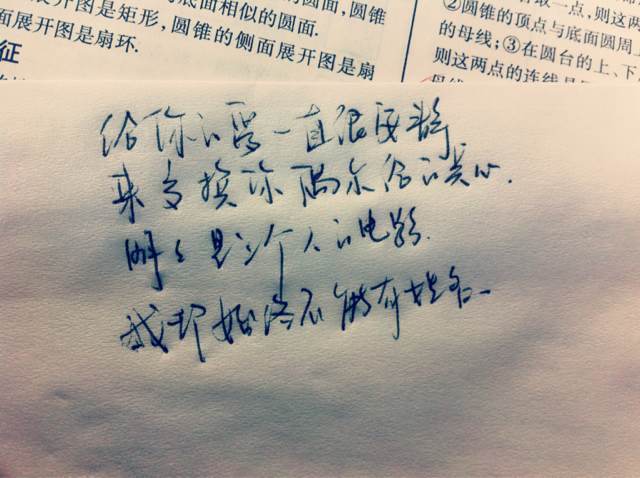 底面相似的圆面,圆锥
展开图是矩形,圆锥的侧面展开图是扇
面展开图是扇环.
征
取一点,则这两
②圆锥的顶点与底面圆周上
的母线;③在圆台的上、下
则这两点的连线
给你的爱一直很安静
来交换你偶尔给的关心.
明明是三个人的电影.
我却始终不能有姓名.